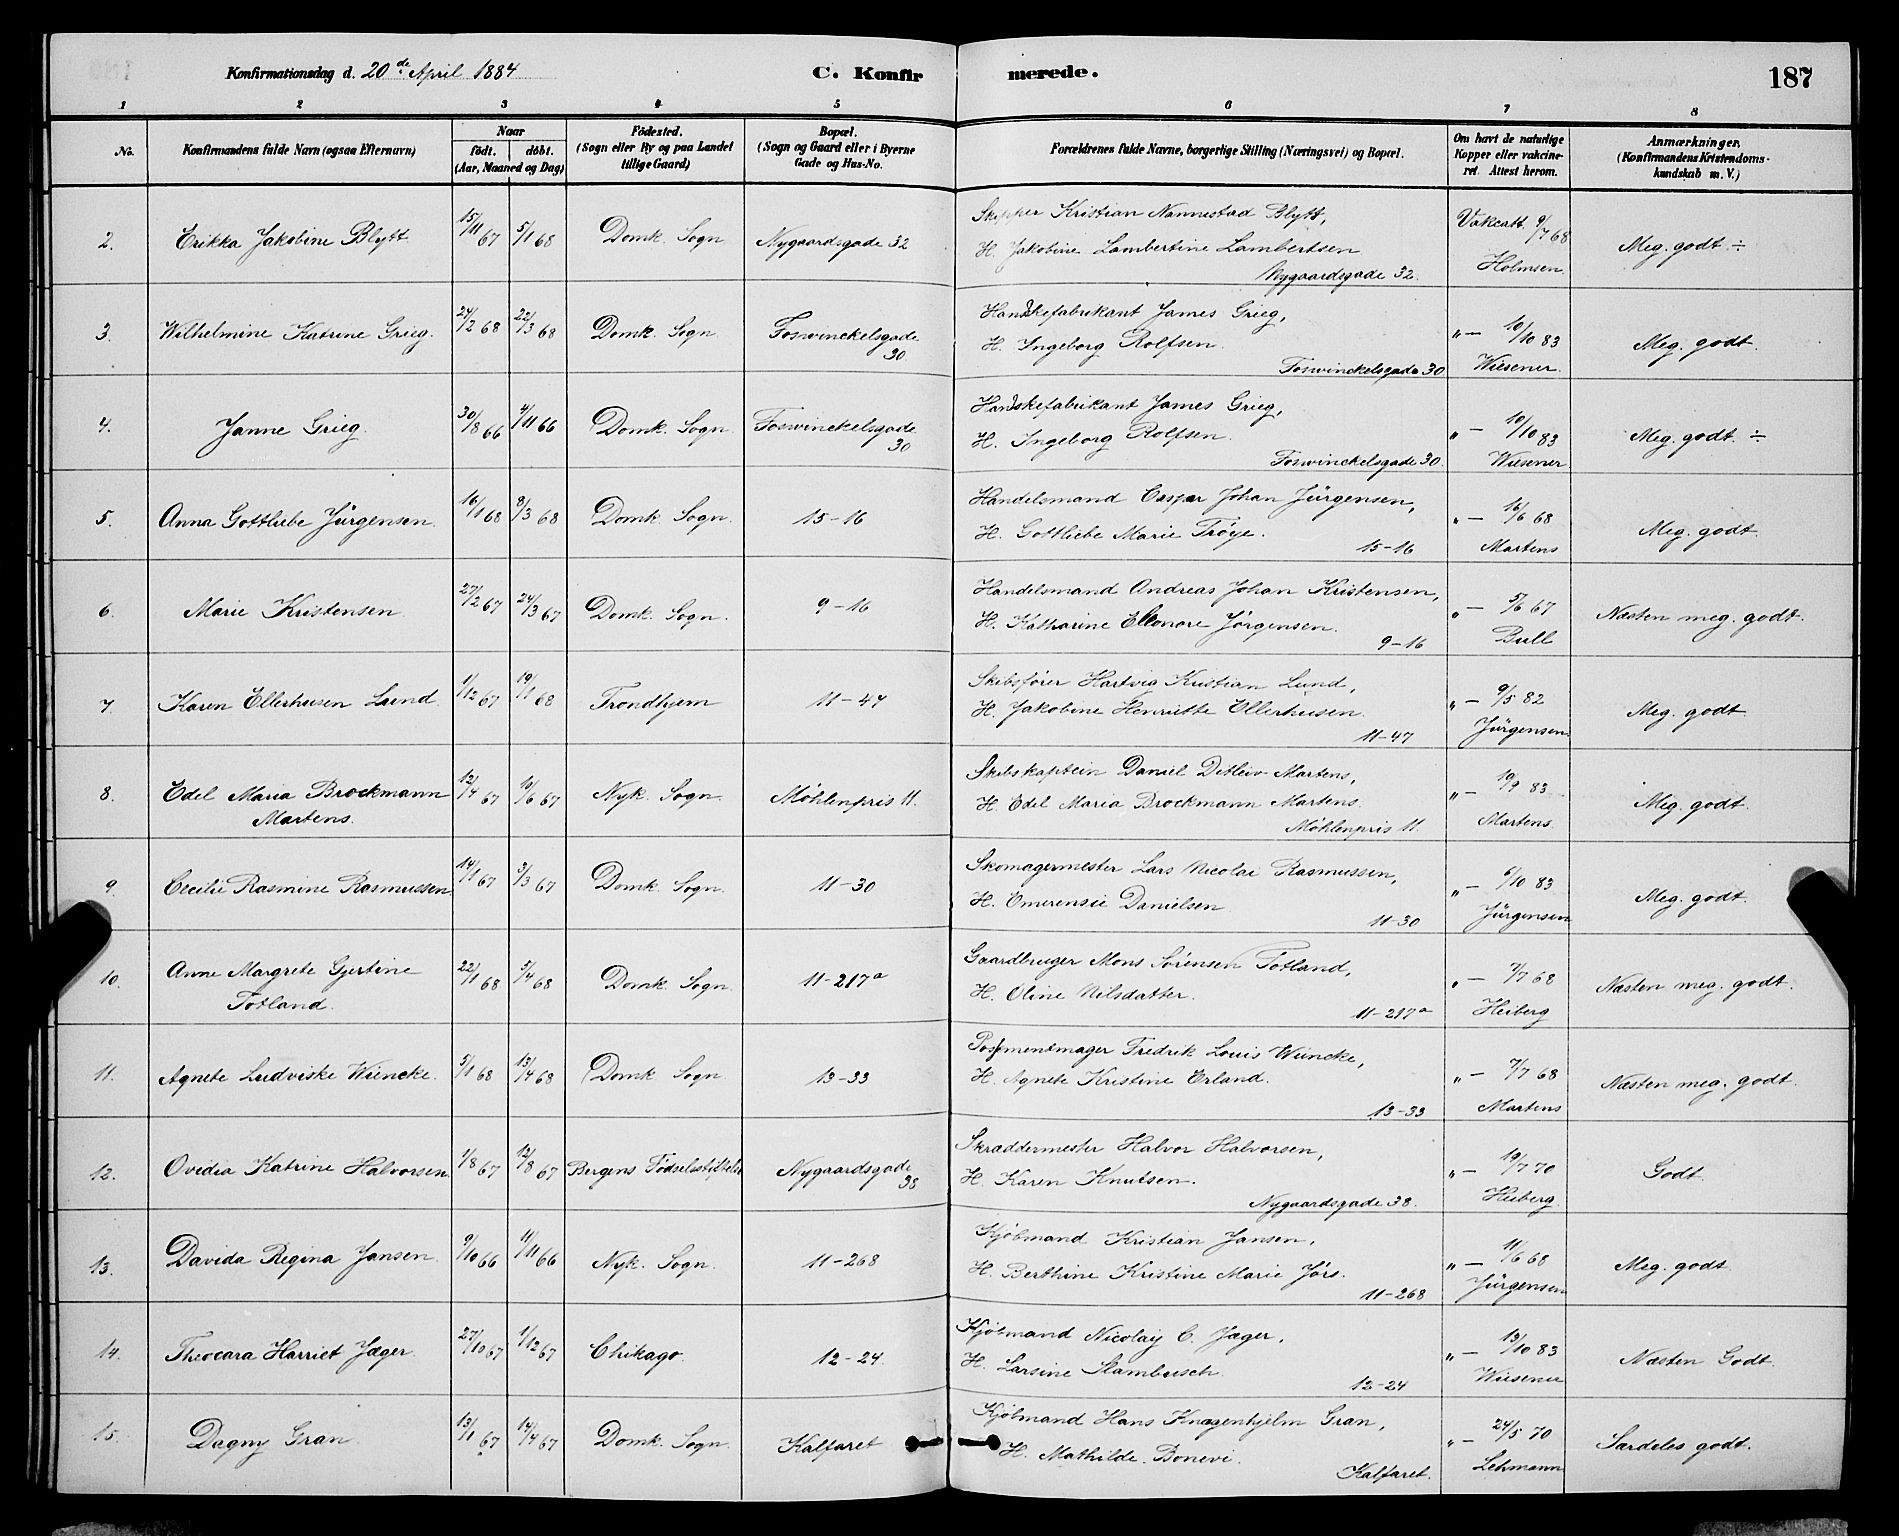 Konfirmationsdag d. 20de April 1884 C. Konfirmerede. 187
1 2 3 4 5 6 7 8
No. Konfirmandens fulde Navn (ogsaa Efternavn) Naar födt. döbt. (Aar, Maaned og Dag) Födested. (Sogn eller By og paa Landet tillige Gaard) Bopæl. (Sogn og Gaard eller i Byerne Gade og Hus-No. Forældrenes fulde Navne, borgerlige Stilling (Næringsvei) og Bopæl. Om havt de naturlige Kopper eller vakcineret. Attest herom. Anmærkninger. (Konfirmandens Kristendomskundskab m. V.)
2. Erikka Jakobine Blytt 15/11 67 5/1 68 Domk. Sogn Nygaardsgade 32 Skipper Kristian Nannestad Blytt, Vakcatt. 9/7 68 Meg. godt ÷
H. Jakobine Lambertine Lambertsen Holmsen
Nygaardsgade 32.
3. Wilhelmine Katrine Grieg. 24/2 68 22/3 68 Domk. Sogn Foswinckelsgade 30 Handskefabrikant James Grieg, " — 10/10 83 Meg. godt.
H. Ingeborg Rolfsen. Wiesener.
Foswinckelsgade 30
4. Janne Grieg. 30/8 66 4/11 66 Domk. Sogn Foswinckelsgade 30 Handskefabrikant James Grieg, " — 10/10 83 Meg. godt. ÷
H. Ingeborg Rolfsen. Wiesener
Foswinckelsgade 30.
5. Anna Gottliebe Jürgensen. 16/1 68 8/3 68 Domk. Sogn. 15-16 Handelsmand Caspar Johan Jürgensen, " — 16/6 68 Meg. godt.
H. Gottliebe Marie Trøye. Martens
15-16
6. Marie Kristensen 27/2 67 24/3 67 Domk. Sogn. 9-16 Handelsmand Andreas Johan Kristensen, " — 5/6 67 Næsten meg. godt.
H. Katharine Elleonore Jørgensen. Bull
9-16
7. Karen Ellerhusen Lund 1/12 67 19/1 68 Trondhjem 11-47 Skibsfører Hartvig Kristian Lund, " — 9/5 82 Meg. godt
H. Jakobine Henriette Ellerhusen. Jürgensen
11-47
8. Edel Maria Brockmann 12/4 67 10/6 67 Nyk. Sogn. Møhlenpris 11. Skibskaptein Daniel Ditleiv Martens, " — 19/9 83 Meg. godt.
Martens. H. Edel Maria Brockmann Martens. Martens.
Møhlenpris 11.
9. Cecilie Rasmine Rasmussen 14/1 67 3/3 67 Domk. Sogn. 11-30 Skomagermester Lars Nicolai Rasmussen, " — 6/10 83 Meg. godt.
H. Emerensie Danielsen Jürgensen
11-30
10. Anne Margrete Gjertine 22/1 68 5/4 68 Domk. Sogn 11-217a Gaardbruger Mons Sørensen Totland, " — 7/7 68 Næsten meg. godt.
Totland. H. Oline Nilsdatter. Heiberg
11-217a
11. Agnete Ludviske Wiencke. 5/1 68 13/4 68 Domk. Sogn 13-33 Possementmager Fredrik Louis Wiencke, " — 7/7 68 Næsten meg. godt.
H. Agnete Kristine Erland. Martens
13-33
12. Ovidia Katrine Halvorsen 1/8 67 12/8 67 Bergens Fødselsstiftelse Nygaardsgade 38 Skræddermester Halvor Halvorsen, " — 19/7 70 Godt
H. Karen Knutsen. Heiberg
Nygaardsgade 38.
13. Davida Regina Jansen 9/10 66 11/11 66 Nyk. Sogn. 11-268 Kjøbmand Kristian Jansen, " — 11/6 68 Meg. godt
H. Berthine Kristine Marie Jørs. Jürgensen
11-268
14. Theocara Harriet Jæger. 27/10 67 1/12 67 Chikago. 12-24. Kjøbmand Nicolay C. Jæger, " — 13/10 83 Næsten Godt.
H. Larsine Stambusch. Wiesener
12-24
15. Dagny Gran 13/1 67 14/4 67 Domk. Sogn Kalfaret Kjøbmand Hans Knagenhjelm Gran, " — 24/5 70 Særdeles godt.
H. Mathilde Bonevi. Lehmann
Kalfaret.